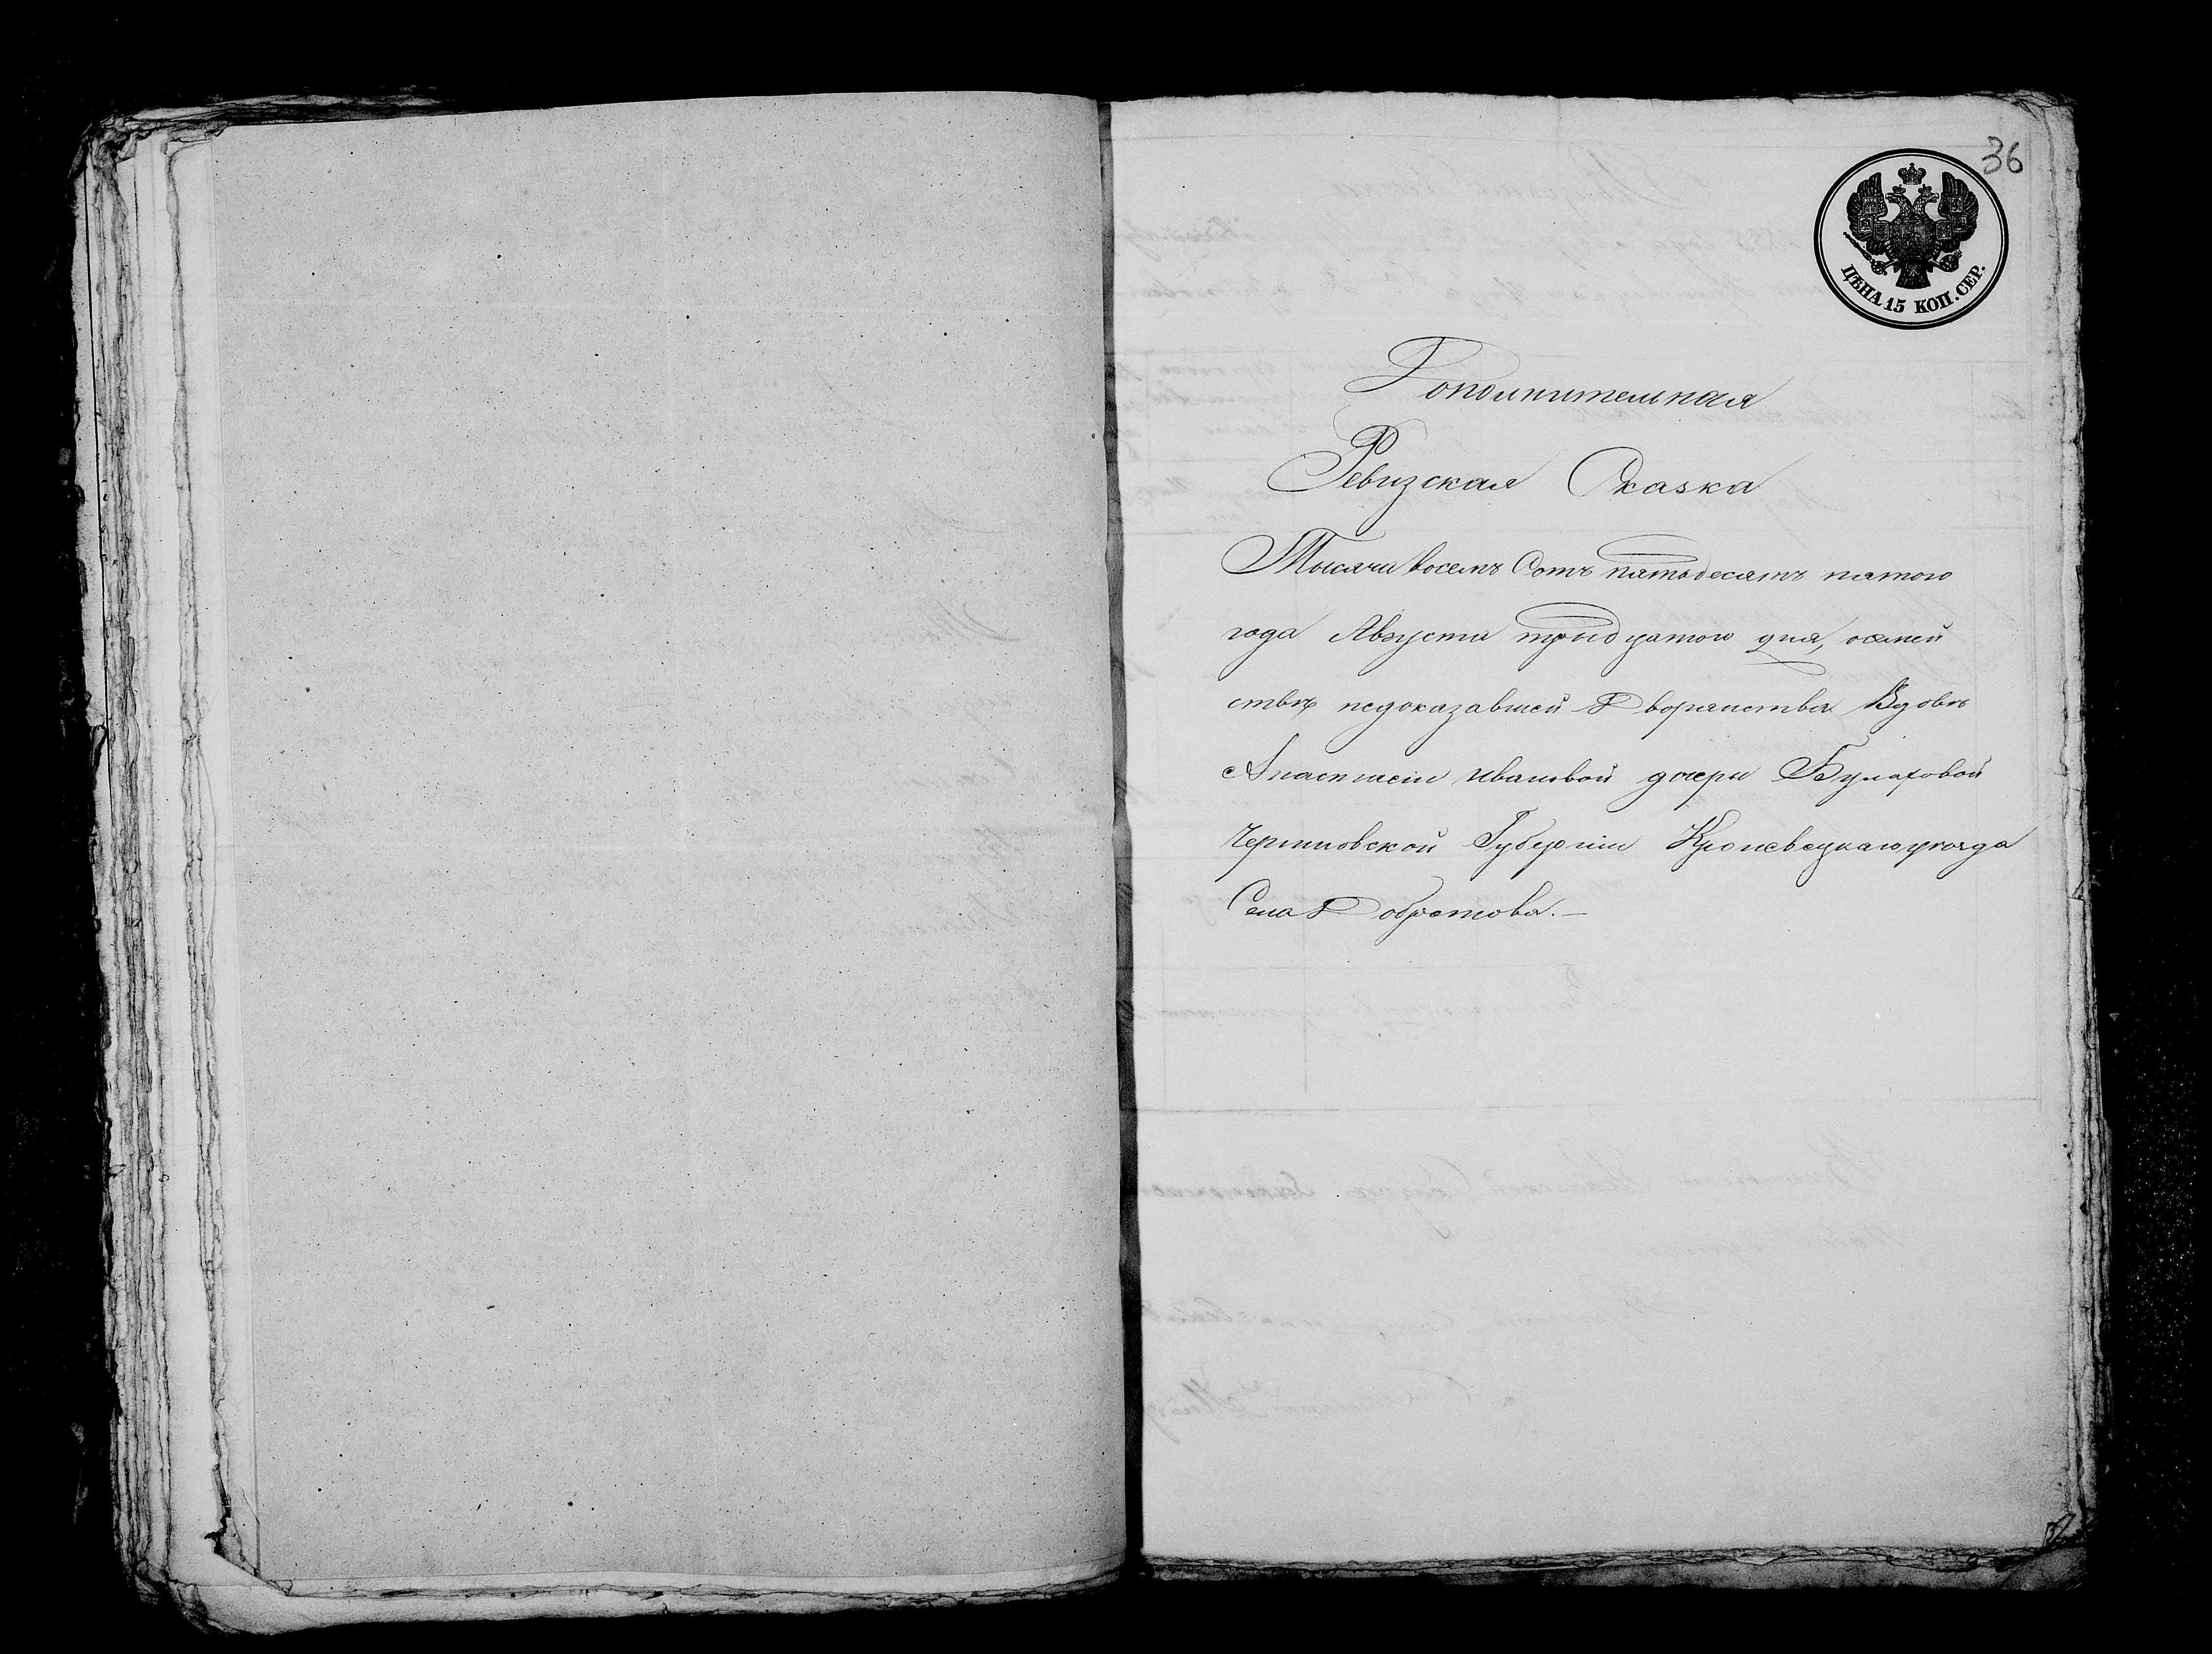 36
ЦѢНА 15 КОП. СЕР.
Дополнительная
Ревизская Сказка
Тысяча восемъ Сотъ пятьдесятъ пятого
года Августа тридцатого дня, осемей
ствѣ недоказавшей Дворянства Вдовѣ
Анастасіи Ивановой дочери Булаховой
Черниговской Губерніи Кролевецкаго уѣзда
Села Добротова.—